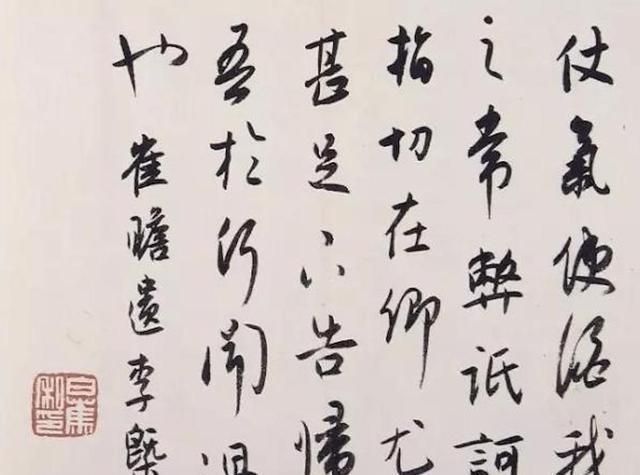 仗氣使酒我
之常弊詆訶
指切在卿尤
甚足下告歸
吾於何聞過
也 崔瞻遺李槩
白蕉